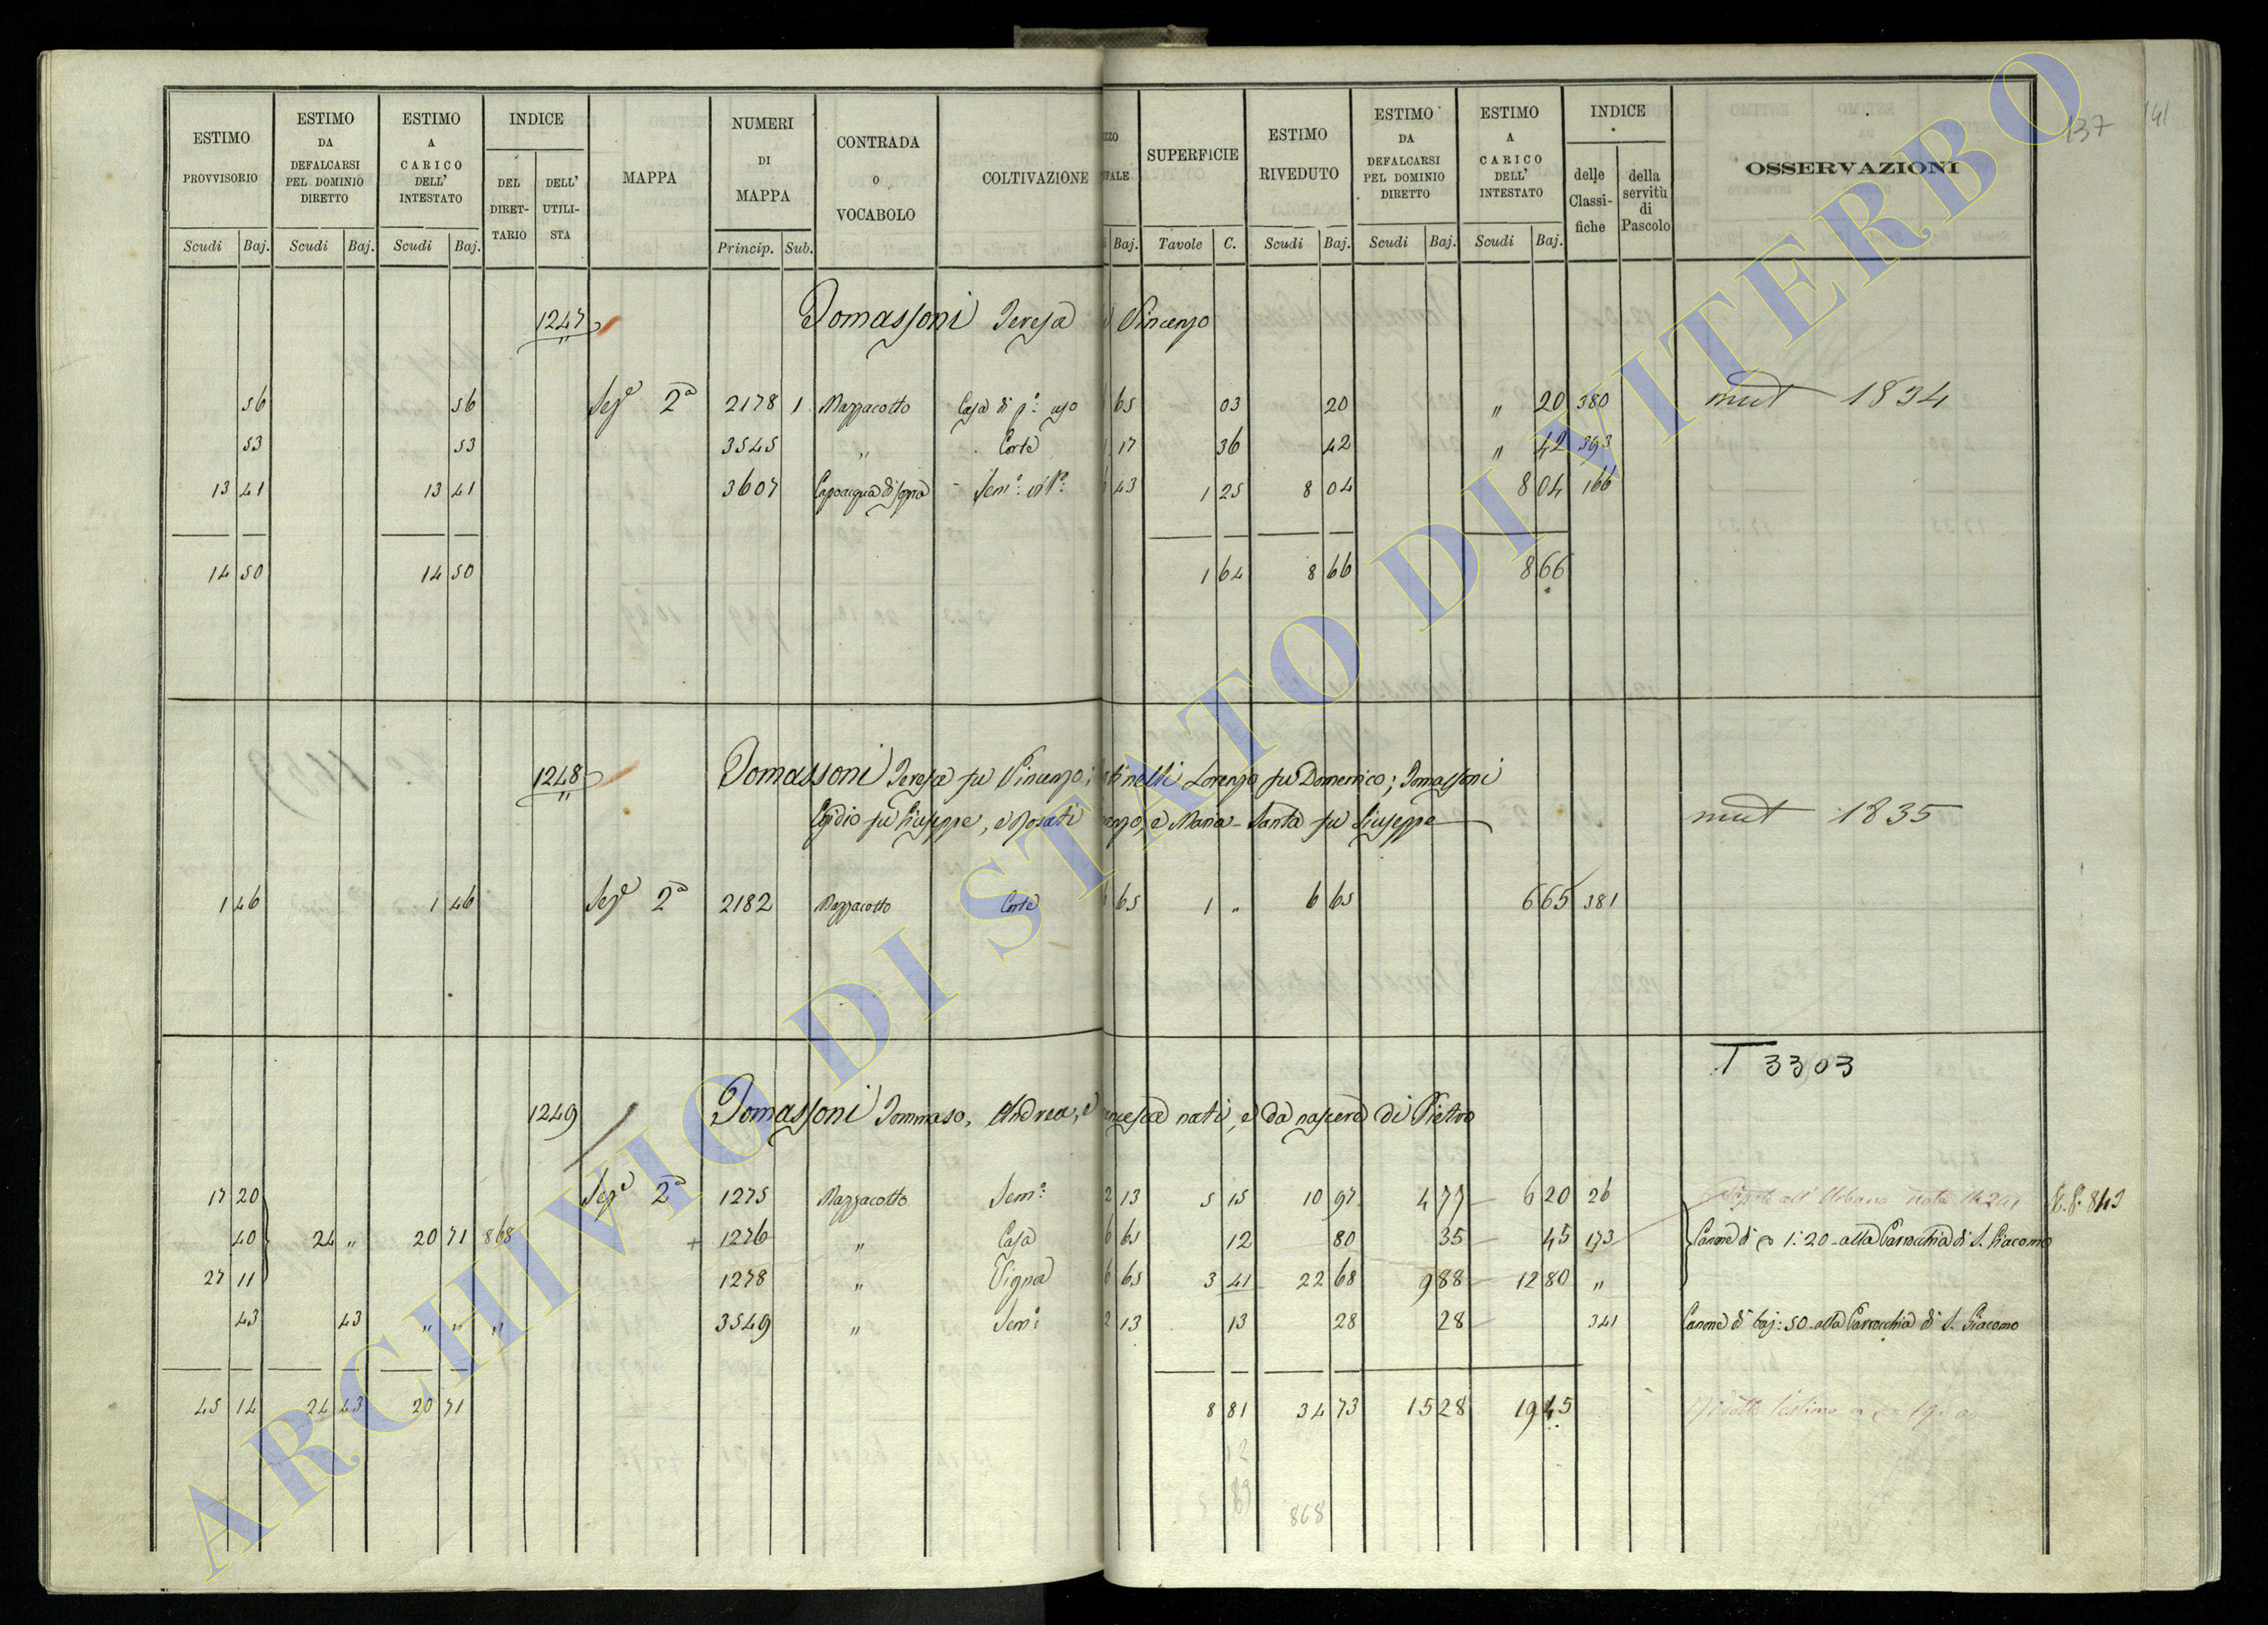 137
141
ESTIMO PROVVISORIO
ESTIMO DA DEFALCARSI PEL DOMINIO DIRETTO
ESTIMO A CARICO DELL' INTESTATO
INDICE
DEL DIRET-TARIO
DELL' UTILI-STA
MAPPA
NUMERI DI MAPPA
CONTRADA O VOCABOLO
COLTIVAZIONE
SUPERFICIE
ESTIMO RIVEDUTO
ESTIMO DA DEFALCARSI PEL DOMINIO DIRETTO
ESTIMO A CARICO DELL' INTESTATO
INDICE
delle Classi-fiche
della servitù di Pascolo
OSSERVAZIONI
Scudi Baj. Scudi Baj. Scudi Baj. Princip. Sub. Baj. Tavole C. Scudi Baj. Scudi Baj. Scudi Baj.
1247 Tomassoni Teresa Vincenzo
56 56 Sez.e 2a 2178 1 Mazzacotto Casa di p.o uso 65 03 20 " 20 380 mut 1834
53 53 3545 " Corte 17 36 42 " 42 393
13 41 13 41 3607 Capoacqua di sopra Sem.o 43 1 25 8 04 8 04 166
14 50 14 50 1 64 8 66 8 66
1248 Tomassoni Teresa fu Vincenzo; tinelli Lorenzo fu Domenico; Tomassoni
Egidio fu Giuseppe, e Rosati enzo, e Maria-Santa fu Giuseppe mut 1835
1 46 1 46 Sez.e 2a 2182 Mazzacotto Corte 6 65 1 " 6 65 6 65 381
T 3303
1249 Tomassoni Tommaso, Andrea, e ancesca nati, e da nascere di Pietro
17 20 Sez.e 2a 1275 Mazzacotto Sem.o 2 13 5 15 10 97 4 77 6 20 26
40 24 " 20 71 868 + 1276 " Casa 6 65 12 80 35 45 173 Canone di 1:20 alla Parrocchia di S. Giacomo
27 11 1278 " Vigna 6 65 3 41 22 68 9 88 12 80 "
43 43 " " " 3549 " Sem.o 2 13 13 28 28 341 Canone di baj: 50 alla Parrocchia di S. Giacomo
45 14 24 43 20 71 8 81 34 73 15 28 19 45
12
868
ARCHIVIO DI STATO DI VITERBO